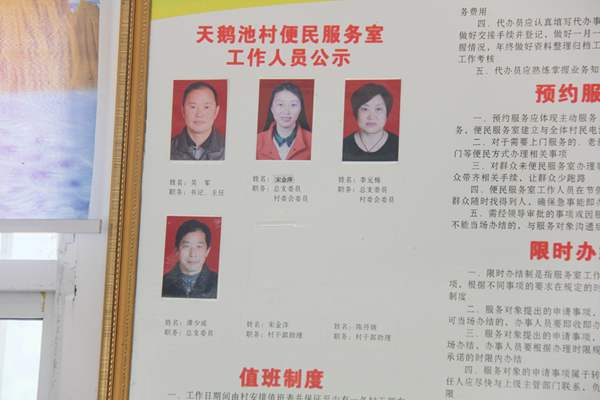 天鹅池村便民服务室
工作人员公示
姓名：吴 军
职务：书记、主任
姓名：宋金萍
职务：总支委员
村委会委员
姓名：李元梅
职务：总支委员
村委会委员
姓名：谭少成
职务：总支委员
姓名：宋金萍
职务：村干部助理
职务：村干部助理
值班制度
务费用
四、代办员应认真填写代办事
做好交接手续并登记，做好一月一
握情况，年终做好资料整理归档工
工作考核
五、代办员应熟练掌握业务知
预约服
一、预约服务应体现主动服务
务，便民服务室建立与全体村民电
二、对于需要上门服务的、老
门等便民方式办理相关事项
三、对群众来便民服务室办理
众带齐相关手续，让群众少跑路
四、便民服务室工作人员在节
群众随时找得到人，确保急事能即
五、需经领导审批的事项或因
不能当场办结的，与服务对象沟通
限时办
一、限时办结制是指服务室工作
项，根据不同事项的要求在规定的时
制度
二、服务对象提出的申请事项，
可当场办结的，办事人员要即收即办
三、服务对象提出的申请事项，
场办结，办事人员要根据办理时限规
承诺的时限内办结
四、服务对象的申请事项属于转
任人应尽快与上级主管部门联系，负